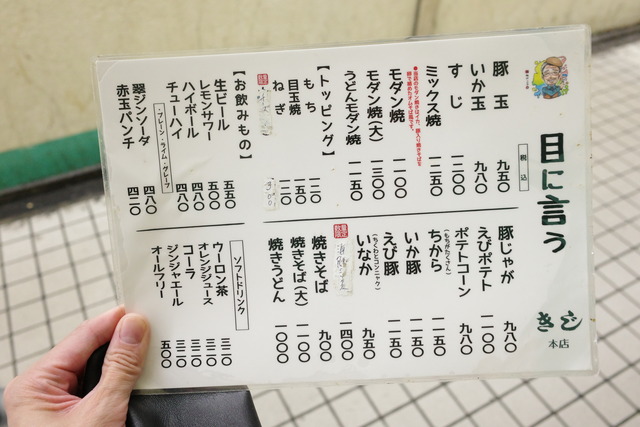 目に言う
きじ
本店
税込
豚玉 九五〇
いか玉 九八〇
すじ 一二〇〇
ミックス焼 一二五〇
モダン焼 一一〇〇
モダン焼(大) 一三〇〇
うどんモダン焼 一一五〇
【トッピング】
もち 一二〇
目玉焼 一五〇
ねぎ 一二〇
【お飲みもの】
生ビール 五五〇
レモンサワー 五〇〇
ハイボール 四八〇
チューハイ 四八〇
(プレーン・ライム・グレープ)
翠ジンソーダ 四八〇
赤玉パンチ 四二〇
豚じゃが 九八〇
えびポテト 一一〇〇
ポテトコーン 九八〇
ちから 一一五〇
(もちがたくさん)
いか豚 一一五〇
えび豚 一一五〇
いなか 九五〇
(ちくわとコンニャク)
数量限定
一四〇〇
焼きそば 九〇〇
焼きそば(大) 一一〇〇
焼きうどん 一〇〇〇
ソフトドリンク
ウーロン茶 三二〇
オレンジジュース 三二〇
コーラ 三二〇
ジンジャエール 三二〇
オールフリー 五〇〇